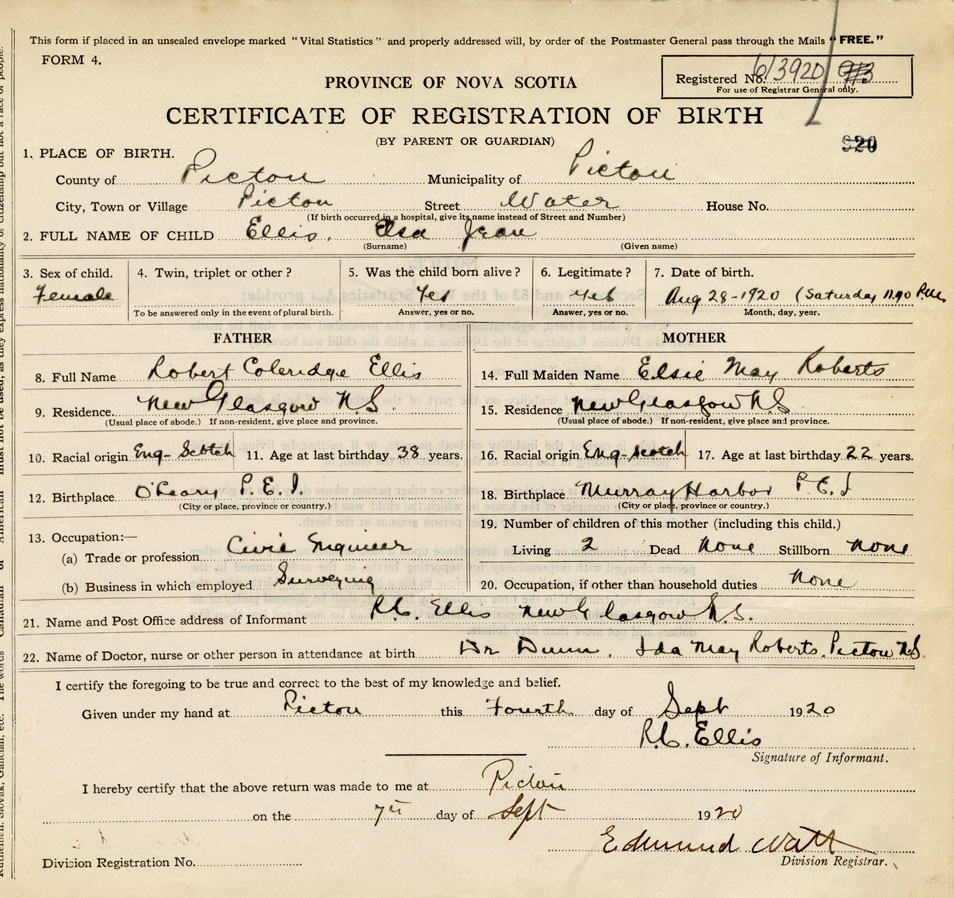 This form if placed in an unsealed envelope marked "Vital Statistics" and properly addressed will, by order of the Postmaster General pass through the Mails "FREE."
FORM 4.
Registered No. 613920
For use of Registrar General only.
PROVINCE OF NOVA SCOTIA
CERTIFICATE OF REGISTRATION OF BIRTH
(BY PARENT OR GUARDIAN)
920
1. PLACE OF BIRTH.
County of Pictou Municipality of Pictou
City, Town or Village Pictou Street Water House No.
(If birth occurred in a hospital, give its name instead of Street and Number)
2. FULL NAME OF CHILD Ellis. Elsa Jean
(Surname) (Given name)
3. Sex of child. 4. Twin, triplet or other? 5. Was the child born alive? 6. Legitimate? 7. Date of birth.
Female Yes Yes Aug 28-1920 (Saturday P.M.
To be answered only in the event of plural birth. Answer, yes or no. Answer, yes or no. Month, day, year.
FATHER
8. Full Name Robert Coleridge Ellis
9. Residence. New Glasgow N.S.
(Usual place of abode.) If non-resident, give place and province.
10. Racial origin Eng-Scotch 11. Age at last birthday 38 years.
12. Birthplace O'Leary P.E.I.
(City or place, province or country.)
13. Occupation:—
(a) Trade or profession Civil Engineer
(b) Business in which employed Surveying
MOTHER
14. Full Maiden Name Elsie May Roberts
15. Residence New Glasgow N.S
(Usual place of abode.) If non-resident, give place and province.
16. Racial origin Eng-Scotch 17. Age at last birthday 22 years.
18. Birthplace Murray Harbor P.E.I
(City or place, province or country.)
19. Number of children of this mother (including this child.)
Living 2 Dead None Stillborn None
20. Occupation, if other than household duties None
21. Name and Post Office address of Informant R.C. Ellis New Glasgow N.S.
22. Name of Doctor, nurse or other person in attendance at birth Dr Dunn. Ida May Roberts. Pictou N.S.
I certify the foregoing to be true and correct to the best of my knowledge and belief.
Given under my hand at Pictou this Fourth day of Sept 1920
R.C. Ellis
Signature of Informant.
I hereby certify that the above return was made to me at Pictou
on the 7th day of Sept 1920
Edmund Watt
Division Registrar.
Division Registration No.